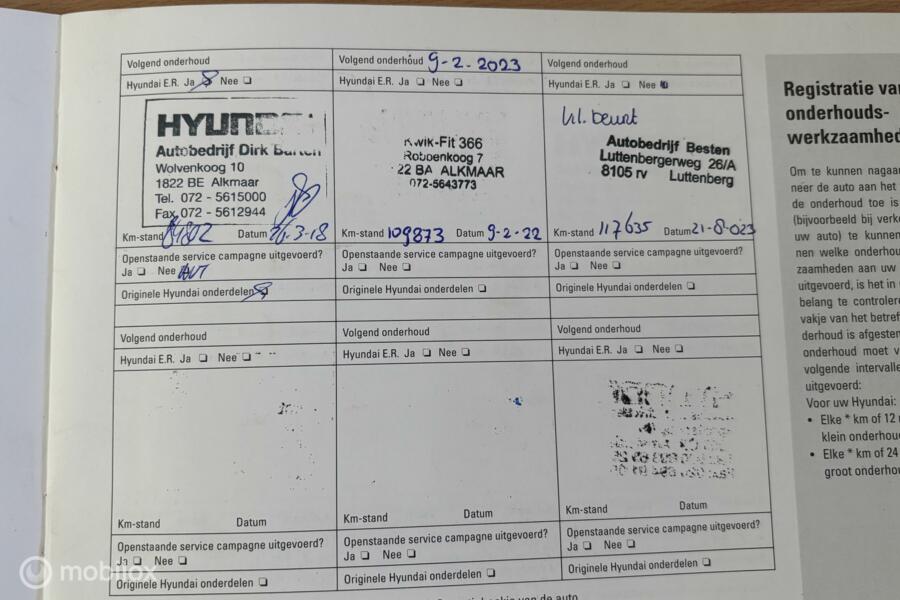 Volgend onderhoud
Hyundai E.R. Ja Nee
HYUNDAI
Autobedrijf Dirk
Wolvenkoog 10
1822 BE Alkmaar
Tel. 072 - 5615000
Fax 072 - 5612944
Km-stand Datum 26-3-18
Openstaande service campagne uitgevoerd?
Ja Nee
Originele Hyundai onderdelen
Volgend onderhoud 9-2-2023
Hyundai E.R. Ja Nee
Kwik-Fit 366
Robbenkoog 7
22 BA ALKMAAR
072-5643773
Km-stand 109873 Datum 9-2-22
Openstaande service campagne uitgevoerd?
Ja Nee
Originele Hyundai onderdelen
Volgend onderhoud
Hyundai E.R. Ja Nee
kl. beurt
Autobedrijf Besten
Luttenbergerweg 26/A
8105 rv Luttenberg
Km-stand 117635 Datum 21-8-023
Openstaande service campagne uitgevoerd?
Ja Nee
Originele Hyundai onderdelen
Volgend onderhoud
Hyundai E.R. Ja Nee
Km-stand Datum
Openstaande service campagne uitgevoerd?
Ja Nee
Originele Hyundai onderdelen
Volgend onderhoud
Hyundai E.R. Ja Nee
Km-stand Datum
Openstaande service campagne uitgevoerd?
Ja Nee
Originele Hyundai onderdelen
Volgend onderhoud
Hyundai E.R. Ja Nee
Km-stand Datum
Openstaande service campagne uitgevoerd?
Ja Nee
Originele Hyundai onderdelen
van de auto
Registratie va
onderhouds-
werkzaamhed
Om te kunnen nagaa
neer de auto aan het
de onderhoud toe is
(bijvoorbeeld bij verk
uw auto) te kunnen
nen welke onderhou
zaamheden aan uw
uitgevoerd, is het in
belang te controlere
vakje van het betref
derhoud is afgesten
onderhoud moet v
volgende intervalle
uitgevoerd:
Voor uw Hyundai:
• Elke * km of 12
klein onderhou
• Elke * km of 24
groot onderho
mobilox